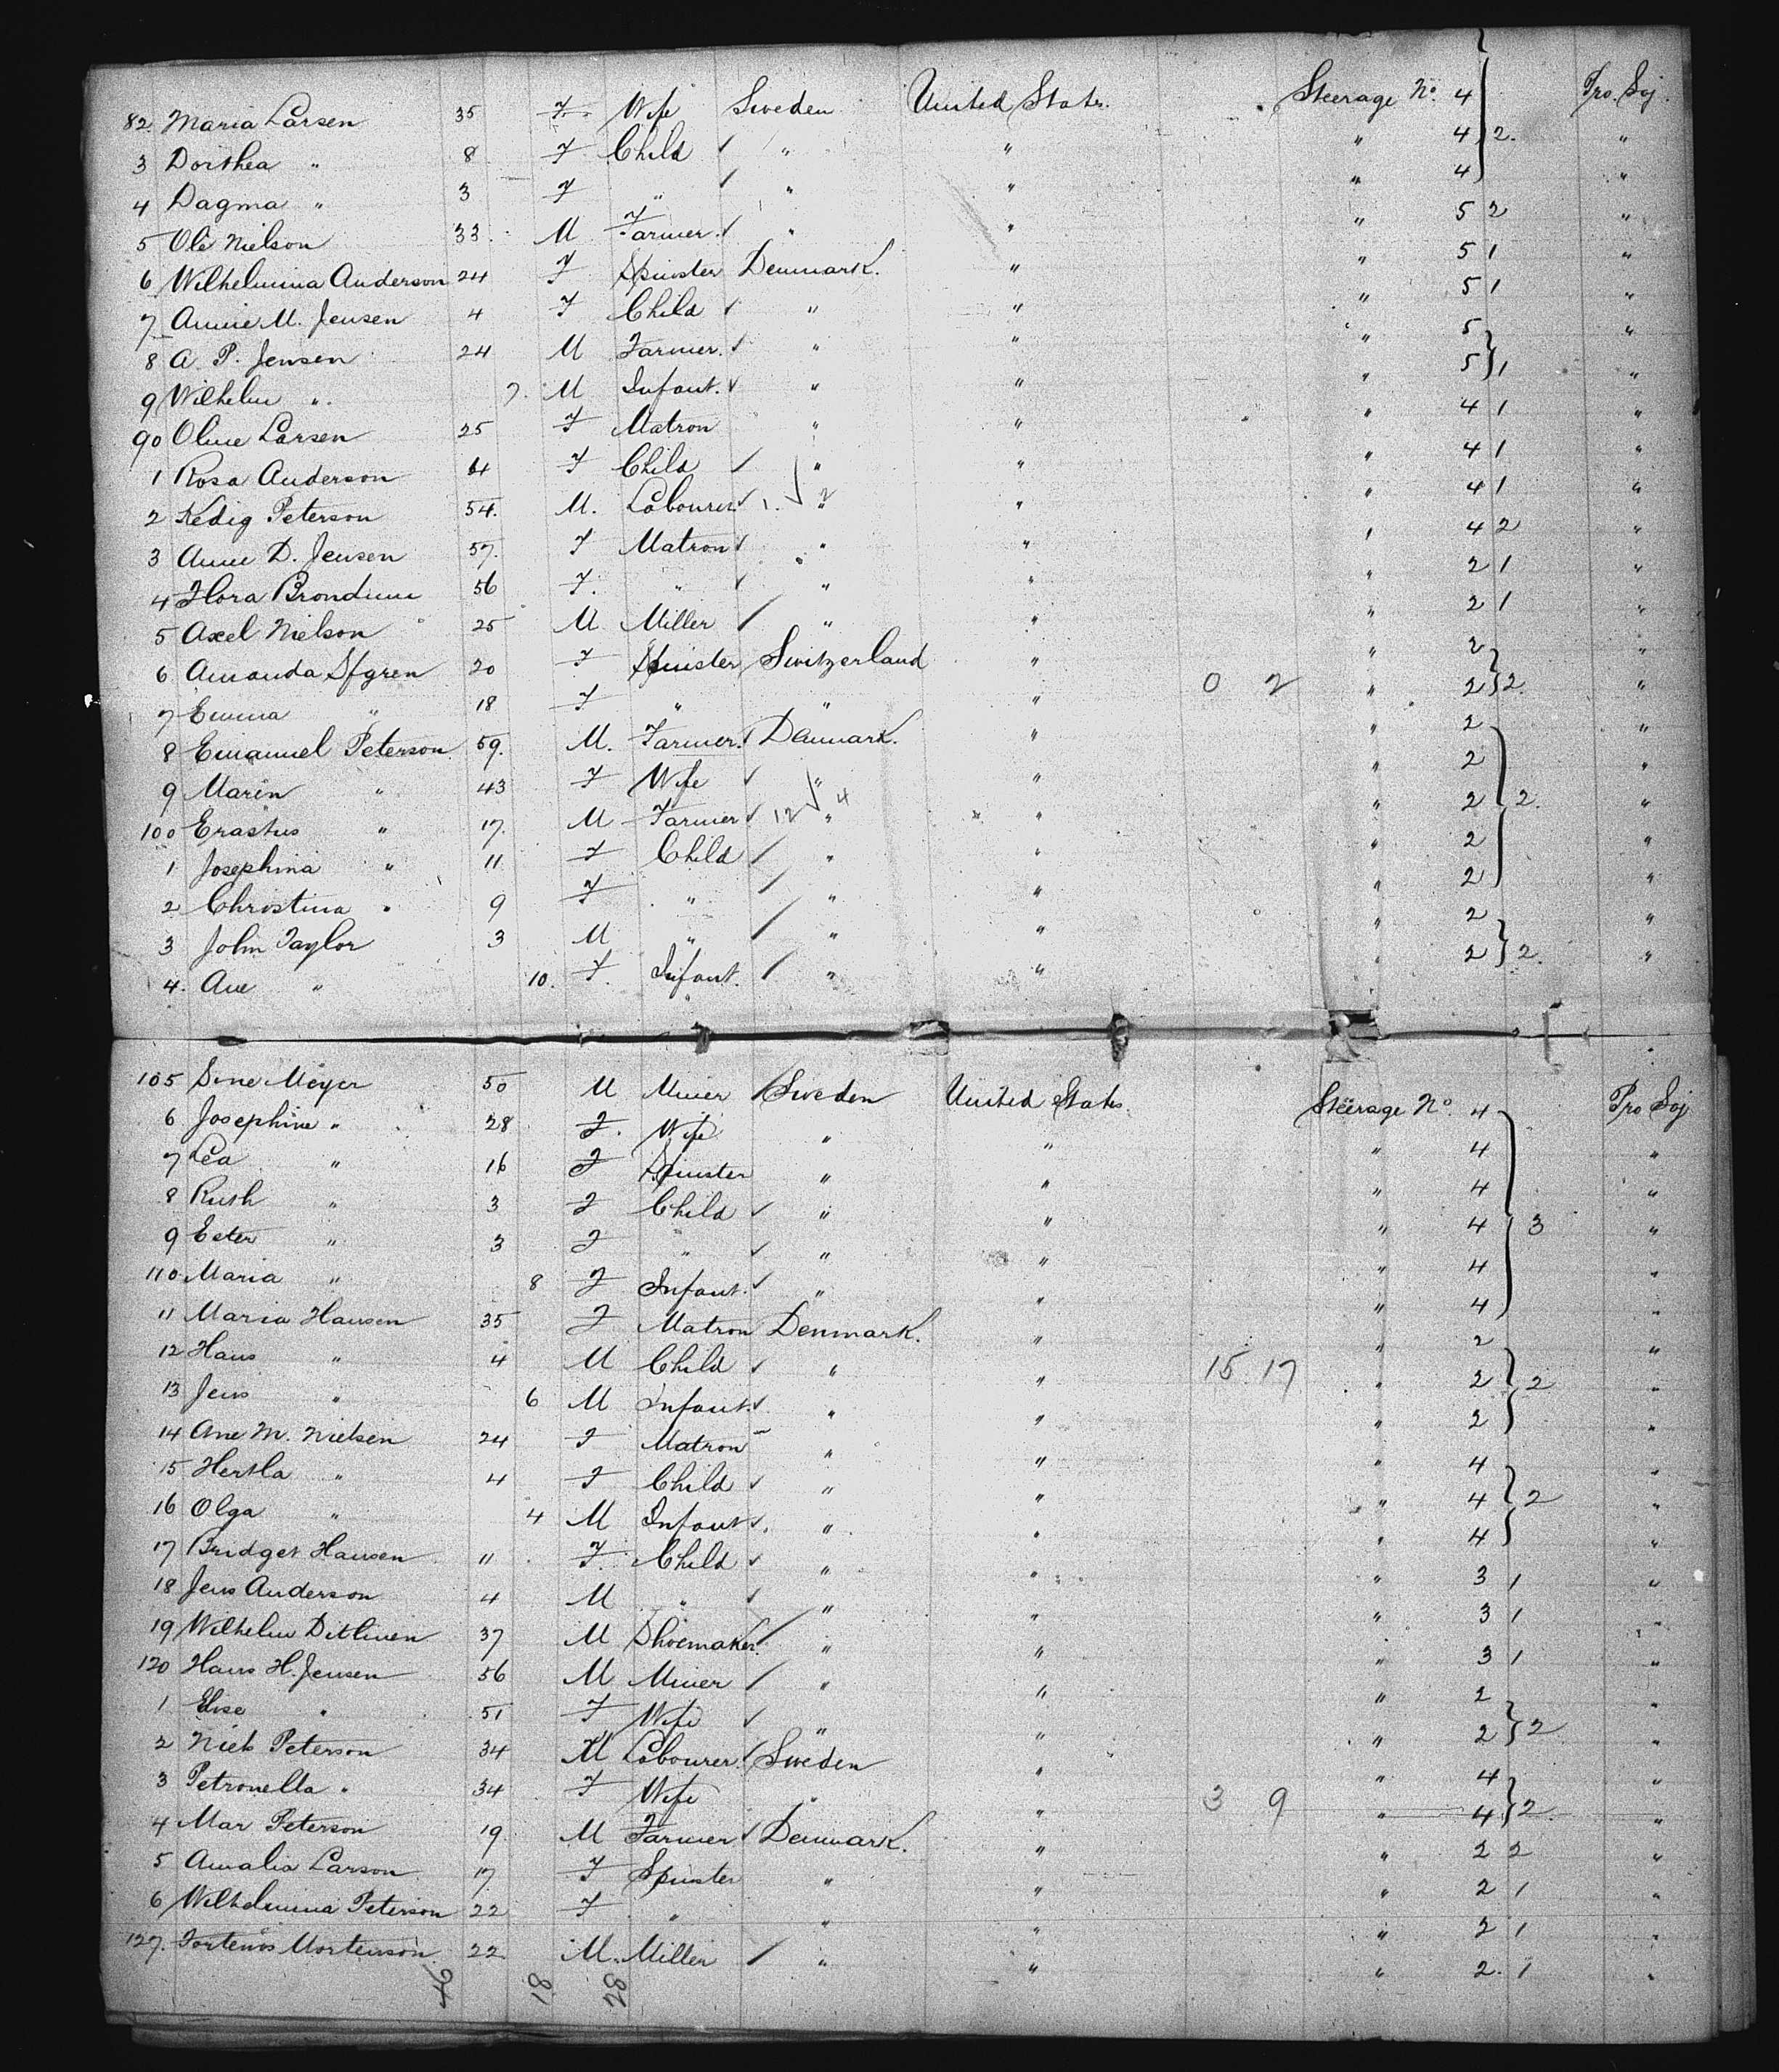 82. Maria Larsen 35 F Wife Sweden United States. Steerage No. 4 Pro. Soj.
3 Dorthea " 8 F Child ✓ " " " 4 2. "
4 Dagma " 3 F " ✓ " " " 4 "
5 Ole Nielson 33. M Farmer. ✓ " " " 5 2 "
6 Wilhelmina Anderson 24 F Spinster Denmark. " " 5 1 "
7 Annie M. Jensen 4 F Child ✓ " " " 5 1 "
8 A. P. Jensen 24 M Farmer. ✓ " " " 5 "
9 Wilhelm " 7. M Infant. ✓ " " " 5 1 "
90 Oline Larsen 25 F Matron " " " 4 1 "
1 Rosa Anderson 4 F Child ✓ " " " 4 1 "
2 Kedig Peterson 54. M. Labourer ✓ 1. ✓ 2 " " " 4 1 "
3 Anne D. Jensen 57. F Matron ✓ " " " 4 2 "
4 Flora Brondum 56 F. " ✓ " " " 2 1 "
5 Axel Nielson 25 M Miller / " " " 2 1 "
6 Amanda Sfgren 20 F Spinster Switzerland " " 2 "
7 Emma " 18 F " " " 0 2 " 2 2. "
8 Emanuel Peterson 59. M. Farmer. ✓ Denmark. " " 2 "
9 Marin " 43 F Wife ✓ " " " 2 "
100 Erastus " 17. M Farmer ✓ 12 ✓ 4 " " " 2 2. "
1 Josephina " 11 F Child / " " " 2 "
2 Christina " 9 F " / " " " 2 "
3 John Taylor 3 M " / " " " 2 "
4. Ane " 10. F. Infant. / " " " 2 2. "
105 Sine Meyer 50 M Miner / Sweden United States. Steerage No. 4 Pro Soj
6 Josephine " 28 F. Wife " " " 4 "
7 Lea " 16 F Spinster " " " 4 "
8 Ruth " 3 F Child ✓ " " " 4 3 "
9 Ester " 3 F " ✓ " " " 4 "
110 Maria " 8 F Infant. ✓ " " " 4 "
11 Maria Hansen 35 F Matron Denmark. " " 2 "
12 Hans " 4 M Child ✓ " " 15 17 " 2 2 "
13 Jens " 6 M Infant. ✓ " " " 2 "
14 Ane M. Nielsen 24 F Matron " " " 4 "
15 Hertha " 4 F Child ✓ " " " 4 2 "
16 Olga " 4 M Infant ✓. " " " 4 "
17 Bridget Hansen 11 F. Child ✓ " " " 3 1 "
18 Jens Anderson 4 M " ✓ " " " 3 1 "
19 Wilhelm 37 M Shoemaker. / " " " 3 1 "
120 Hans H. Jensen 56 M Miner / " " " 2 "
1 Elise " 51 F Wife ✓ " " " 2 2 "
2 Niels Peterson 34 M Labourer. ✓ Sweden " " 4 "
3 Petronella " 34 F Wife " " 3 9 " 4 2 "
4 Mar Peterson 19 M Farmer ✓ Denmark. " " 2 2 "
5 Amalia Larson 17 F Spinster " " " 2 1 "
6 Wilhelmina Peterson 22 F " " " " 2 1 "
127. Mortenson 22 M. Miller / " " " 2. 1 "